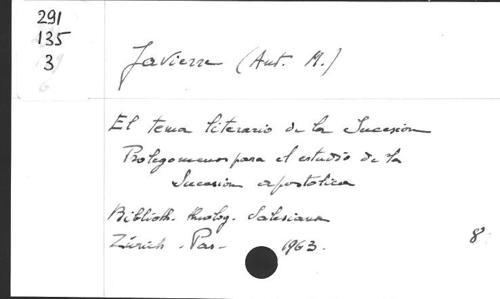 291
135
3
Javierre (Ant. M.)
El tema literario de la Sucesion
Prolegomenos para el estudio de la
Sucesion apostolica
Biblioth. theolog. Salesiana
Zürich - Pas- 1963.
8°